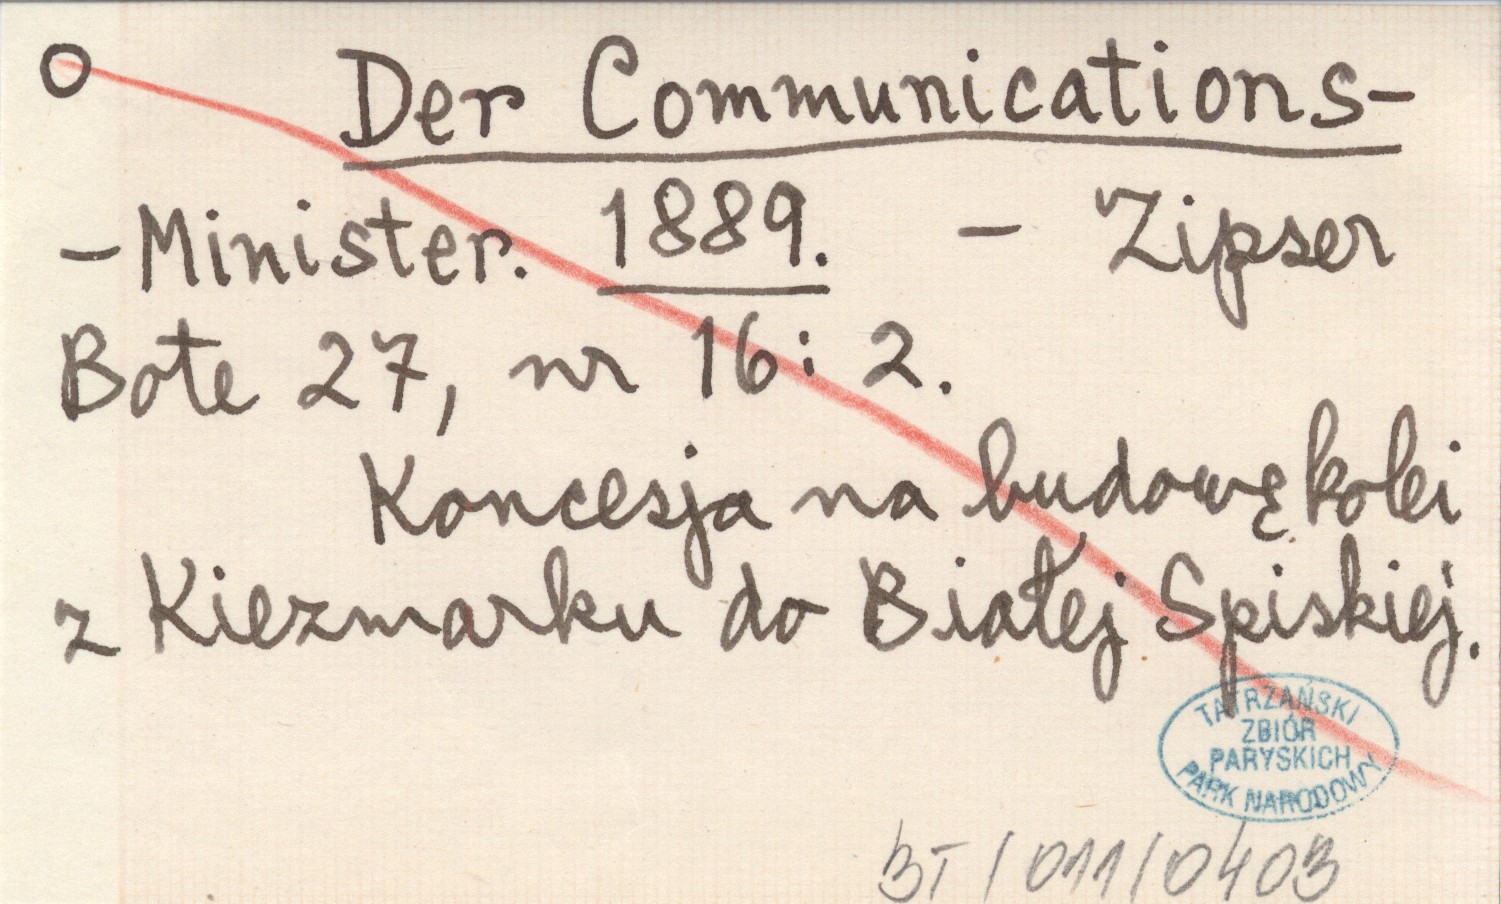 O Der Communications-
-Minister. 1889. - Zipser
Bote 27, nr 16: 2.
Koncesja na budowę kolei
z Kiezmarku do Białej Spiskiej.
TATRZAŃSKI
ZBIÓR
PARYSKICH
PARK NARODOWY
BT/011/0403